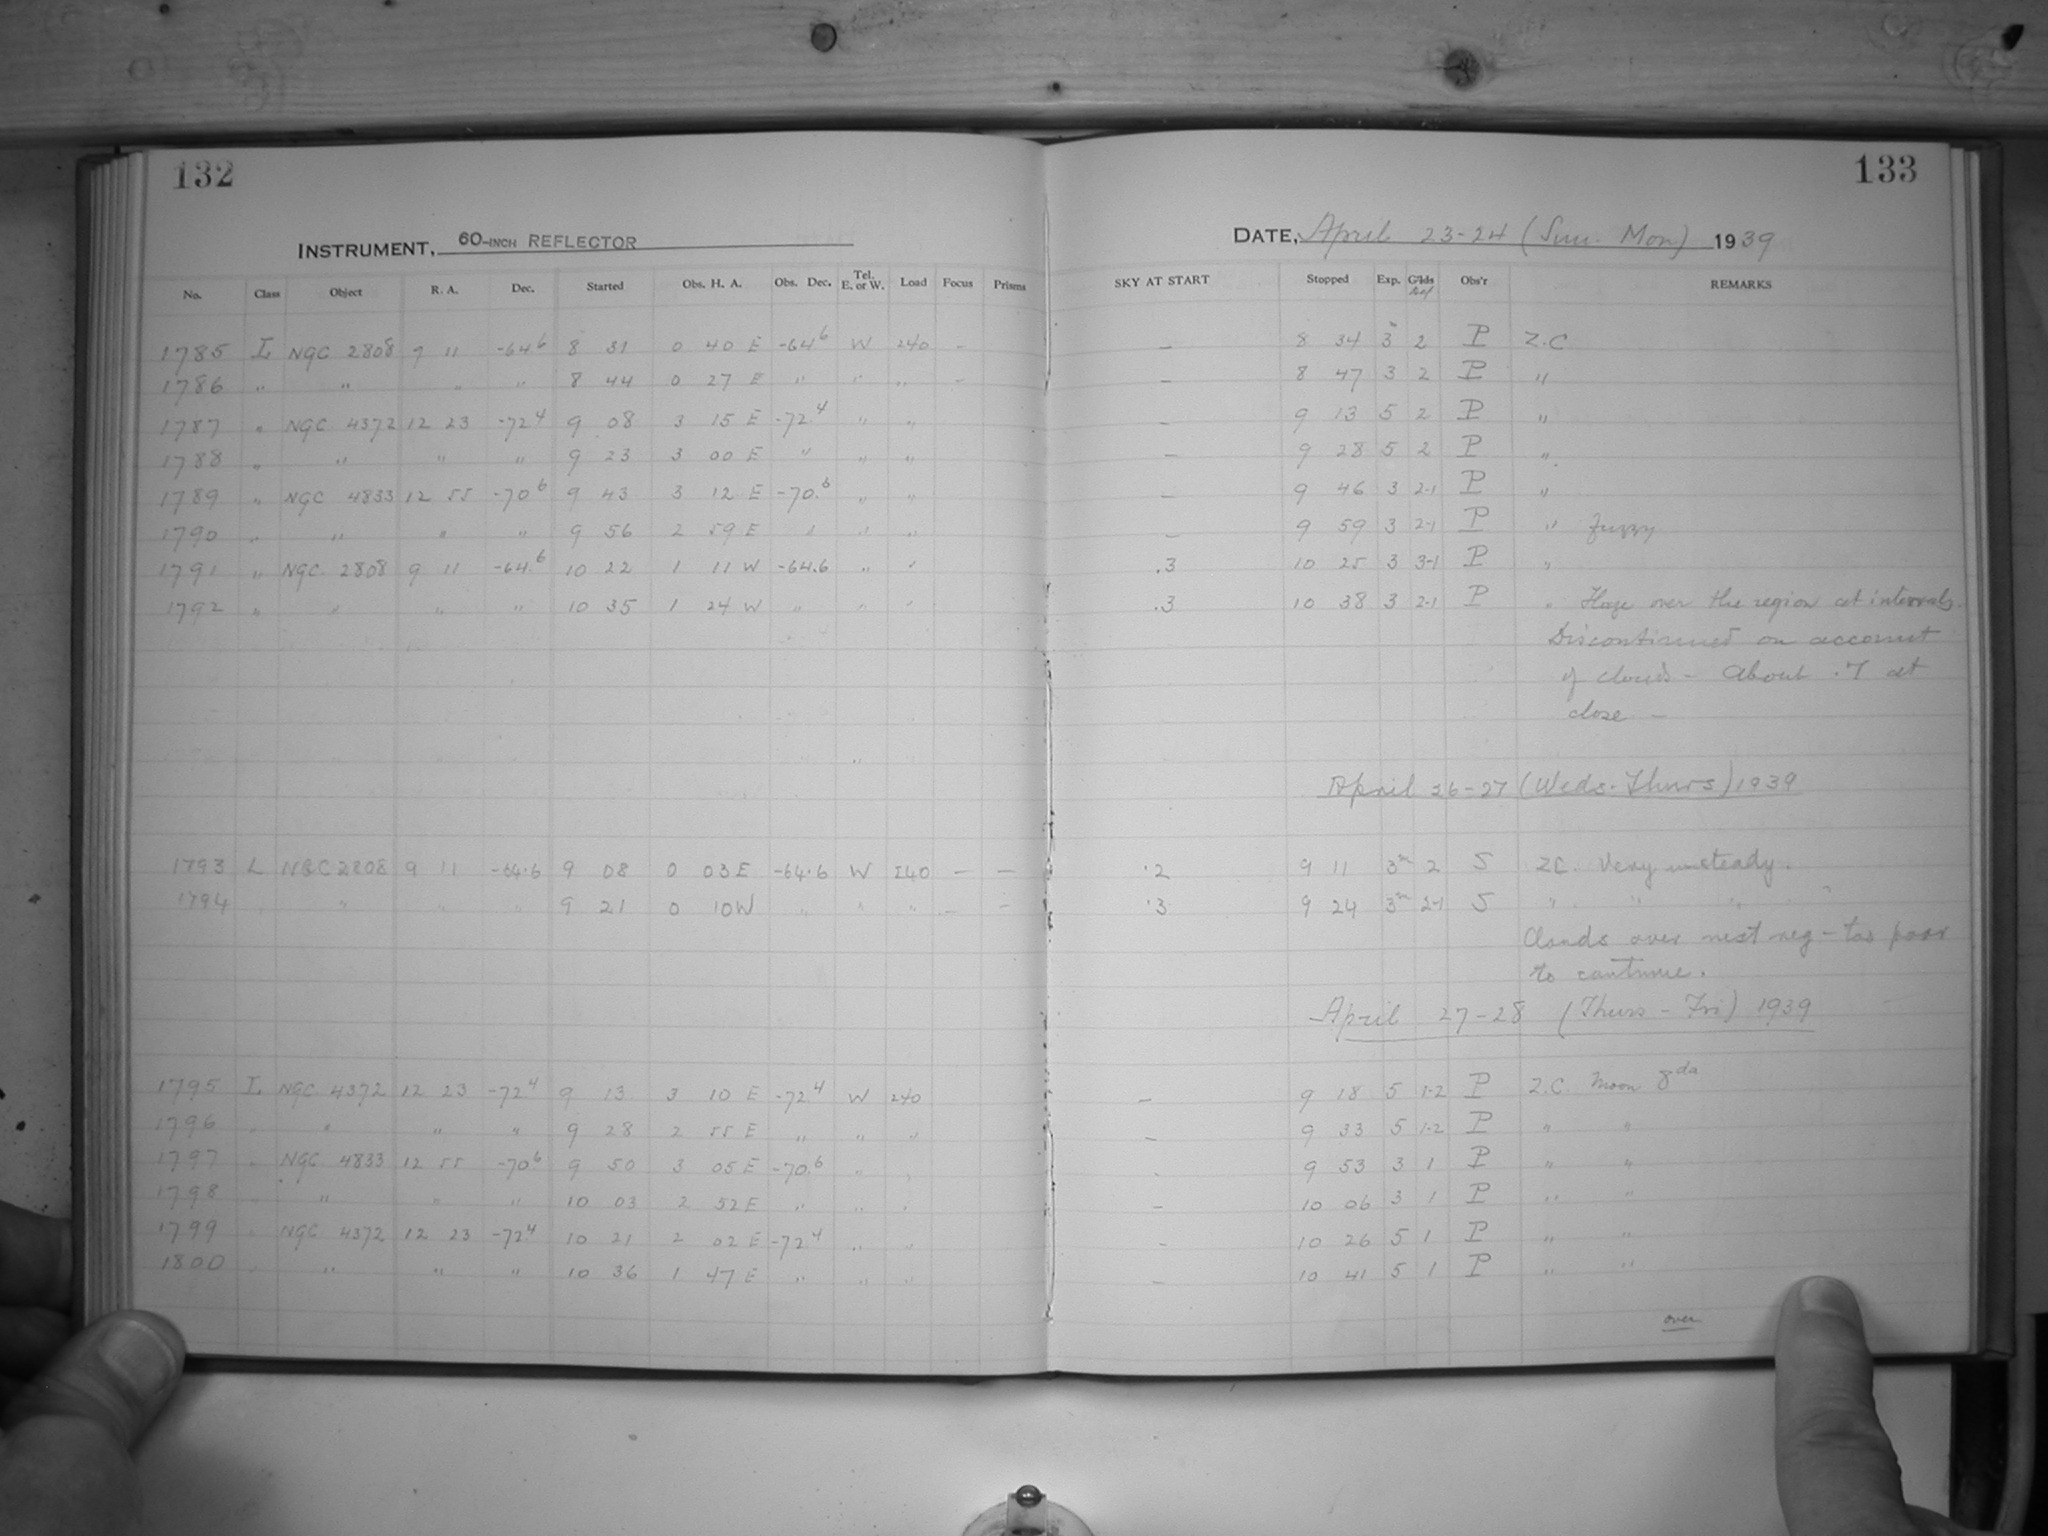 132
133
INSTRUMENT, 60-INCH REFLECTOR
DATE, April 23-24 (Sun. Mon) 1939
No. Class Object R. A. Dec. Started Obs. H. A. Obs. Dec. Tel. E. or W. Load Focus Prisms SKY AT START Stopped Exp. G'lds Obs'r REMARKS
1785 L NGC 2808 9 11 -64 6 8 31 0 40 E -64 6 W 240 - - 8 34 3 m 2 P Z.C
1786 " " " " 8 44 0 27 E " " " - - 8 47 3 2 P "
1787 " NGC 4372 12 23 -72 4 9 08 3 15 E -72. 4 " " - 9 13 5 2 P "
1788 " " " " 9 23 3 00 E " " " - 9 28 5 2 P "
1789 " NGC 4833 12 55 -70 6 9 43 3 12 E -70. 6 " " - 9 46 3 2-1 P "
1790 " " " " 9 56 2 59 E " " " - 9 59 3 2-1 P " fuzzy
1791 " NGC. 2808 9 11 -64. 6 10 22 1 11 W -64.6 " " .3 10 25 3 3-1 P "
1792 " " " " 10 35 1 24 W " " " .3 10 38 3 2-1 P " Haze over the region at intervals.
Discontinued on account
of clouds - About .7 at
close -
April 26-27 (Weds. Thurs) 1939
1793 L NGC 2808 9 11 -64.6 9 08 0 03 E -64.6 W 240 - - .2 9 11 3 m 2 S ZC. Very unsteady.
1794 " " " " 9 21 0 10 W " " " - - .3 9 24 3 m 2-1 S " " "
Clouds over next reg - too poor
to continue.
April 27-28 (Thurs - Fri) 1939
1795 L NGC 4372 12 23 -72 4 9 13 3 10 E -72. 4 W 240 - 9 18 5 1-2 P Z.C. Moon 8 da
1796 " " " " 9 28 2 55 E " " " - 9 33 5 1-2 P " "
1797 " NGC 4833 12 55 -70 6 9 50 3 05 E -70. 6 " " - 9 53 3 1 P " "
1798 " " " " 10 03 2 52 E " " " - 10 06 3 1 P " "
1799 " NGC 4372 12 23 -72 4 10 21 2 02 E -72 4 " " - 10 26 5 1 P " "
1800 " " " " 10 36 1 47 E " " " - 10 41 5 1 P " "
over